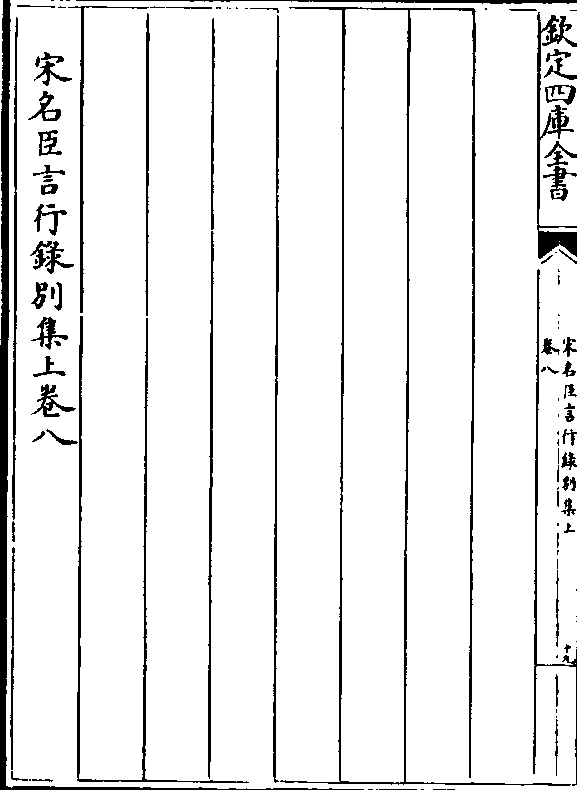 欽定四庫全書
宋名臣言行錄別集上
卷八
十九
宋名臣言行錄別集上卷八